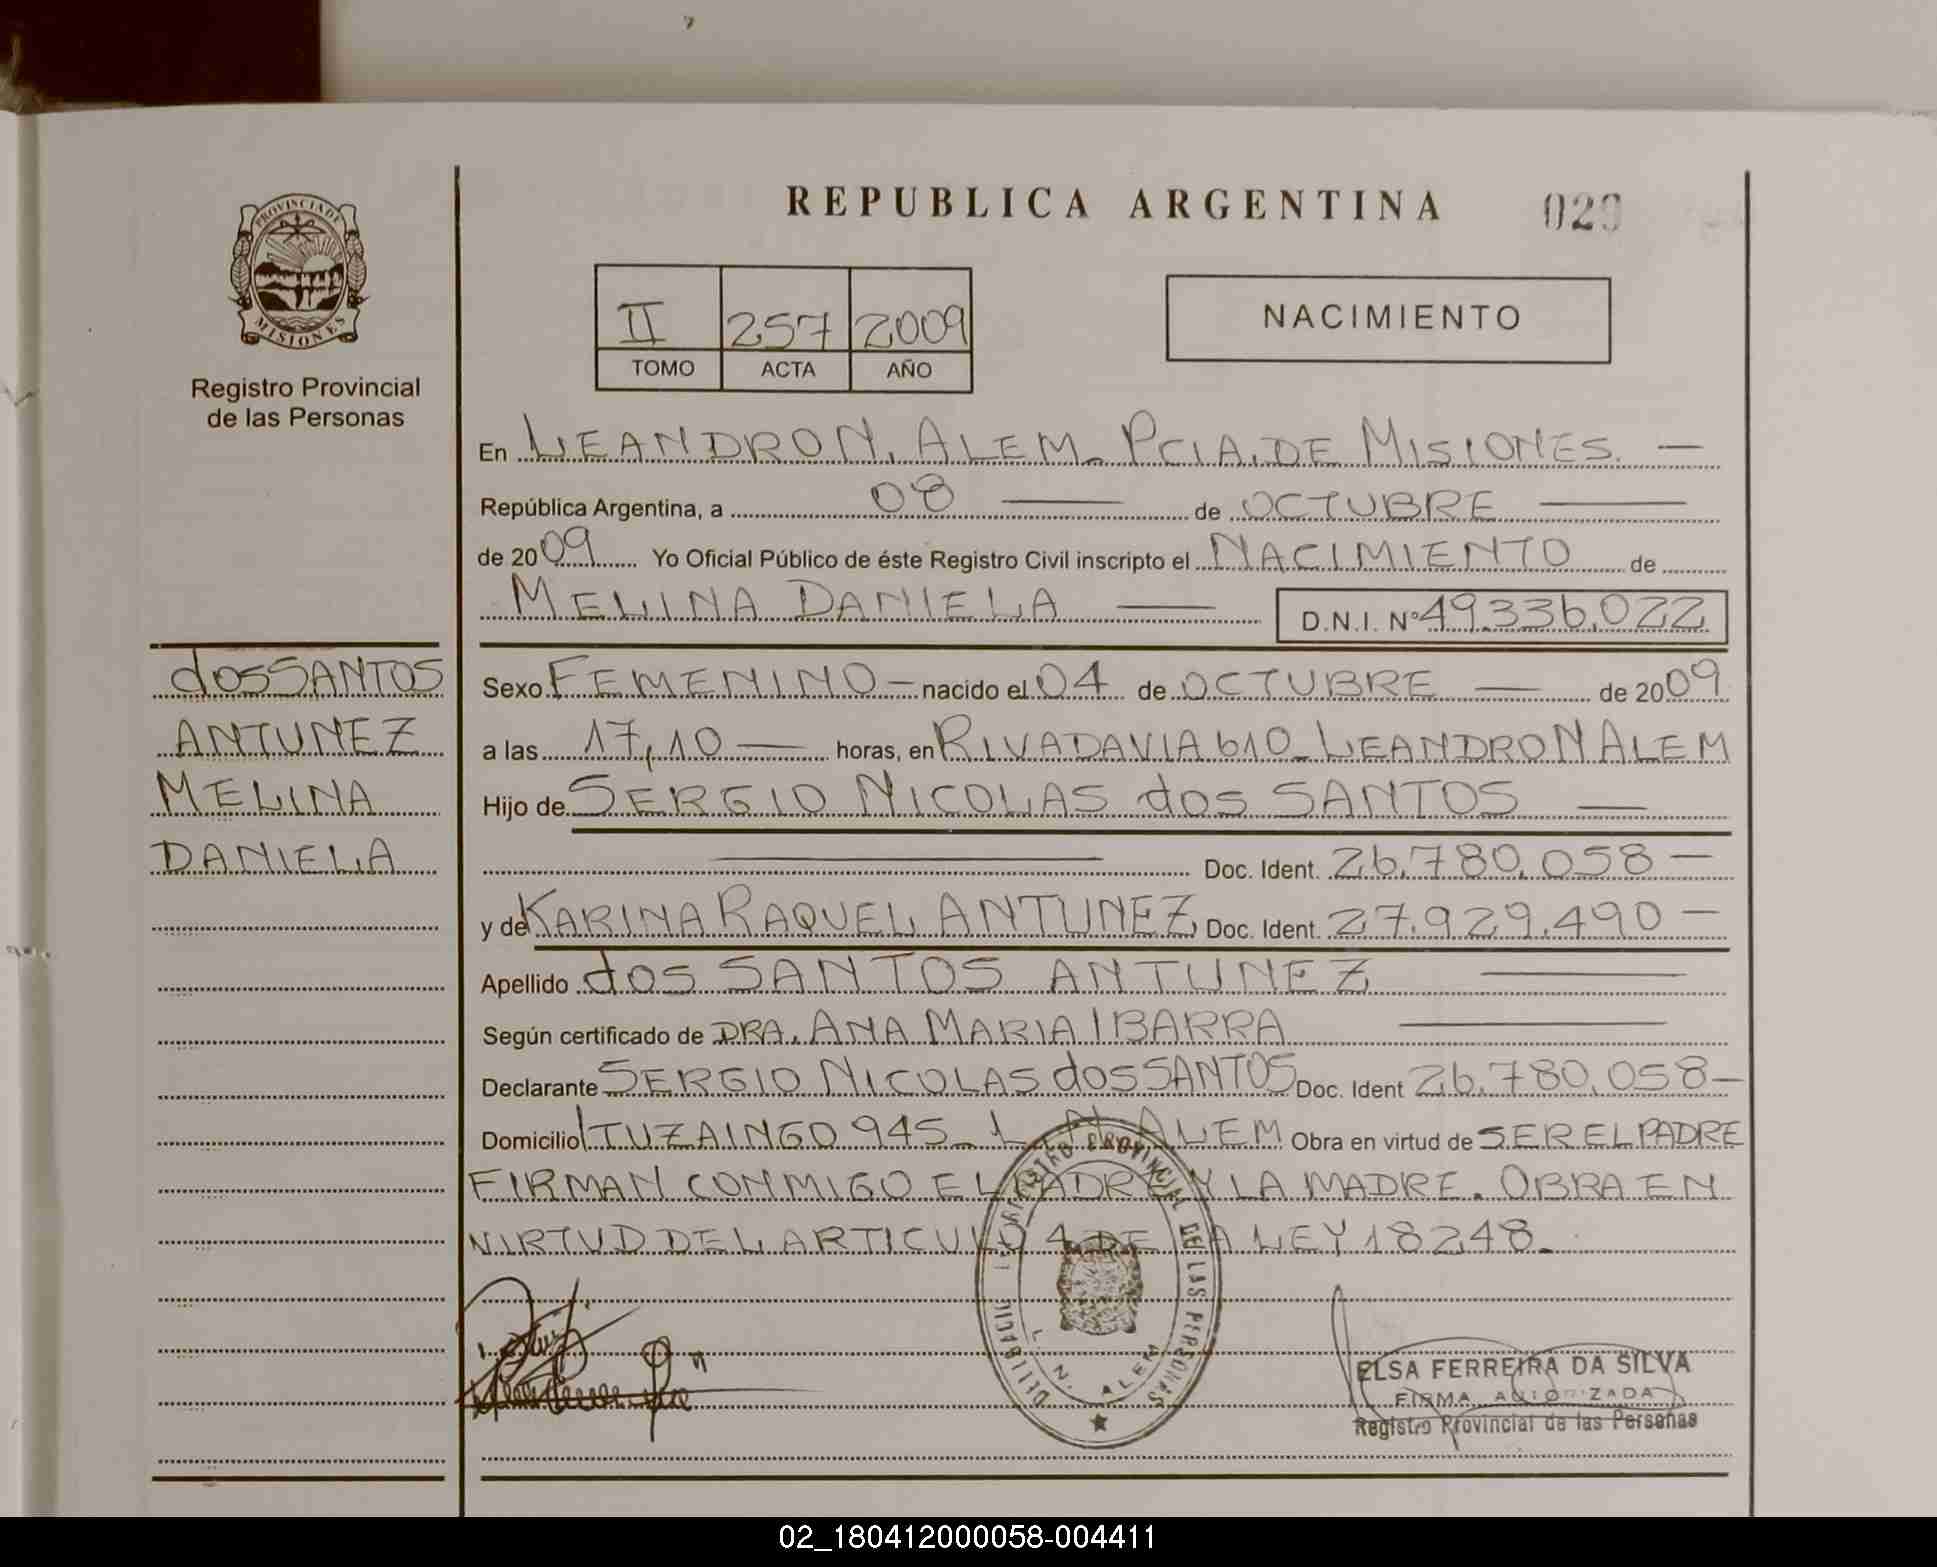 PROVINCIA DE
MISIONES
Registro Provincial
de las Personas
dos SANTOS
ANTUNEZ
MELINA
DANIELA
REPUBLICA ARGENTINA 029
II 257 2009
TOMO ACTA AÑO
NACIMIENTO
En LEANDRO N. ALEM - PCIA. DE MISIONES. —
República Argentina, a 08 — de OCTUBRE —
de 2009 Yo Oficial Público de éste Registro Civil inscripto el NACIMIENTO de
MELINA DANIELA — D.N.I. N° 49.336.022
Sexo FEMENINO — nacido el 04 de OCTUBRE — de 2009
a las 17,10 — horas, en RIVADAVIA 610 - LEANDRO N ALEM
Hijo de SERGIO NICOLAS dos SANTOS —
— Doc. Ident. 26.780.058 —
y de KARINA RAQUEL ANTUNEZ Doc. Ident. 27.929.490 —
Apellido dos SANTOS ANTUNEZ —
Según certificado de DRA. ANA MARIA IBARRA —
Declarante SERGIO NICOLAS dos SANTOS Doc. Ident 26.780.058 —
Domicilio ITUZAINGO 945 - L. N. ALEM Obra en virtud de SER EL PADRE
FIRMAN CONMIGO EL PADRE Y LA MADRE. OBRA EN
VIRTUD DEL ARTICULO 4 DE LA LEY 18248.
REGISTRO PROVINCIAL DE LAS PERSONAS
L. N. ALEM
ELSA FERREIRA DA SILVA
FIRMA AUTORIZADA
Registro Provincial de las Personas
02_180412000058-004411